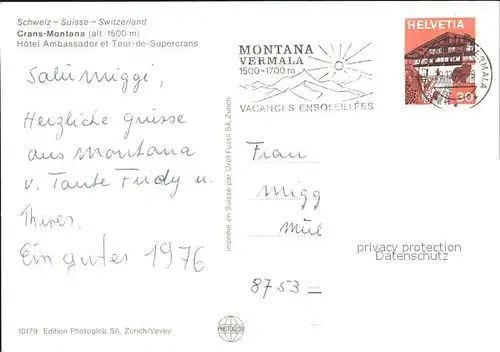 Schweiz – Suisse – Switzerland
Crans-Montana (alt. 1500 m)
Hôtel Ambassador et Tour-de-Supercrans
Salü Miggi,
Herzliche Grüsse
aus Montana
v. Tante Fridy u.
Theres.
Ein gutes 1976
10179 Edition Photoglob SA, Zurich/Vevey
Imprimé en Suisse par Orell Füssli SA, Zurich
PHOTOGLOB
MONTANA
VERMALA
1500-1700 m
VACANCES ENSOLEILLÉES
HELVETIA
30
VERMALA
Frau
Migg
Mül
privacy protection
Datenschutz
8753